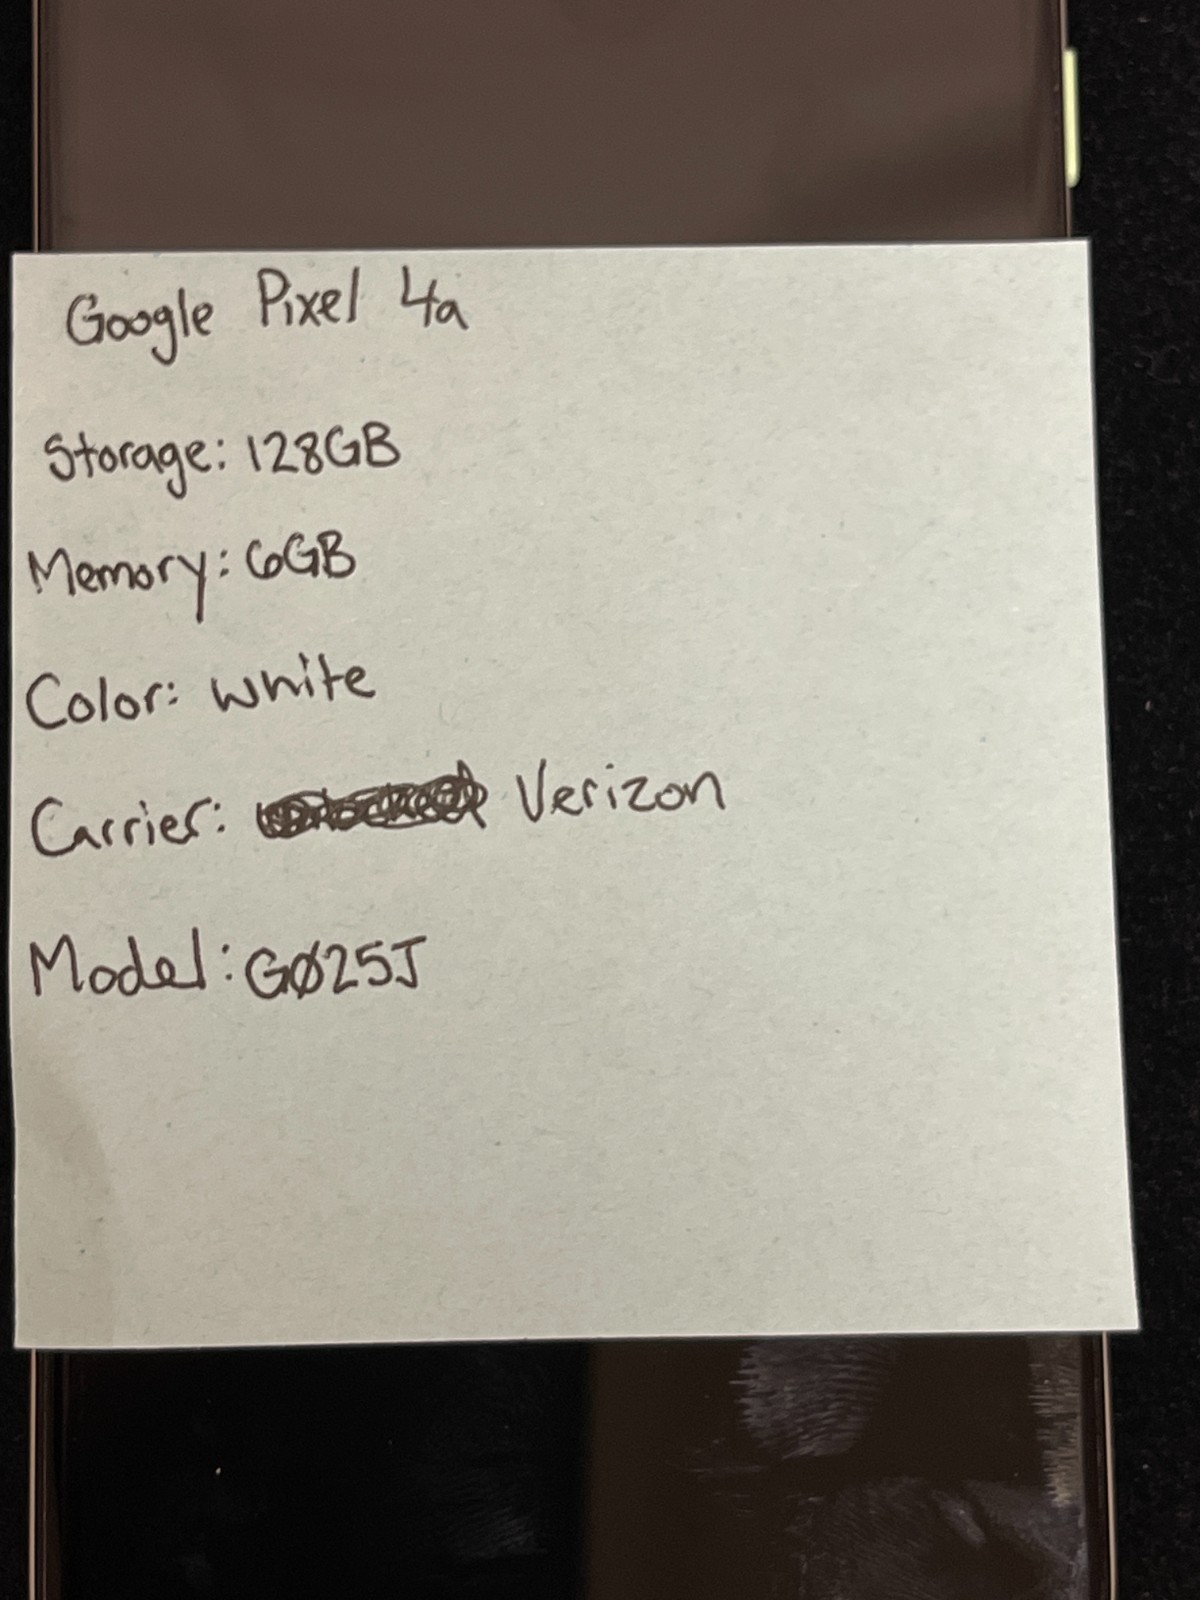 Google Pixel 4a
Storage: 128GB
Memory: 6GB
Color: white
Carrier: Verizon
Model: G025J